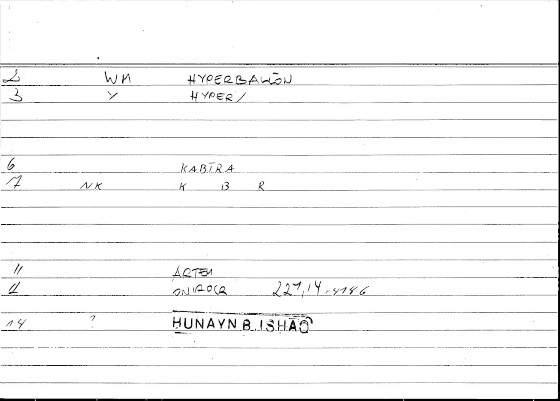 2 WM HYPERBALLŌN
3 Y HYPER/
6 KABĪRA
7 NK K B R
11 ARTEM
12 ONIROCR 227,14
14 ? HUNAYN B. ISHĀQ